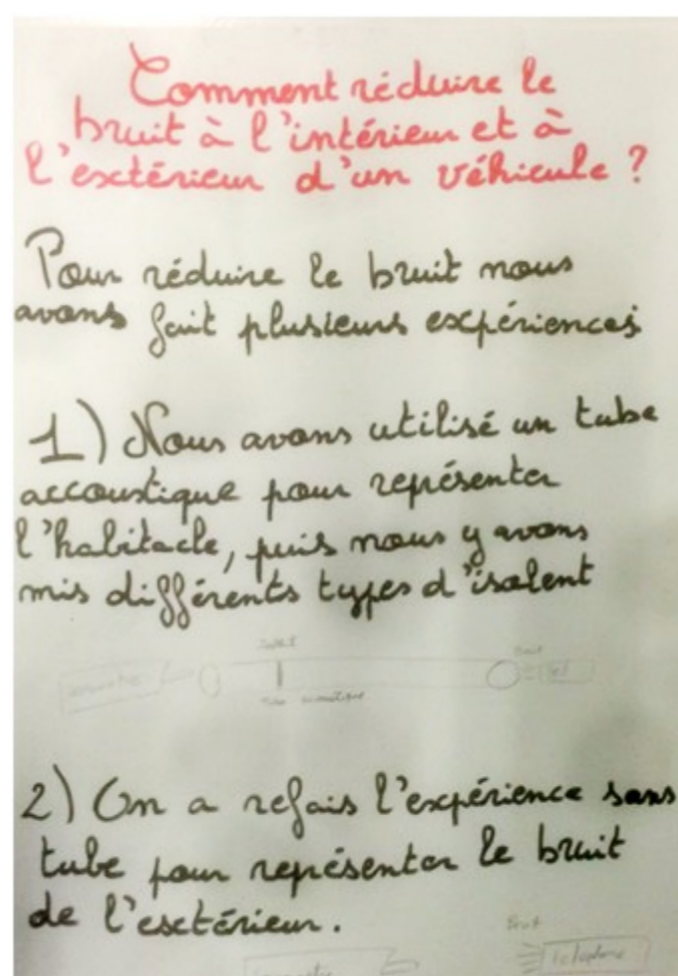 Comment réduire le
bruit à l'intérieur et à
l'extérieur d'un véhicule ?
Pour réduire le bruit nous
avons fait plusieurs expériences
1) Nous avons utilisé un tube
accoustique pour représenter
l'habitacle, puis nous y avons
mis différents types d'isolent
2) On a refais l'expérience sans
tube pour représenter le bruit
de l'extérieur.
Bruit
telephone